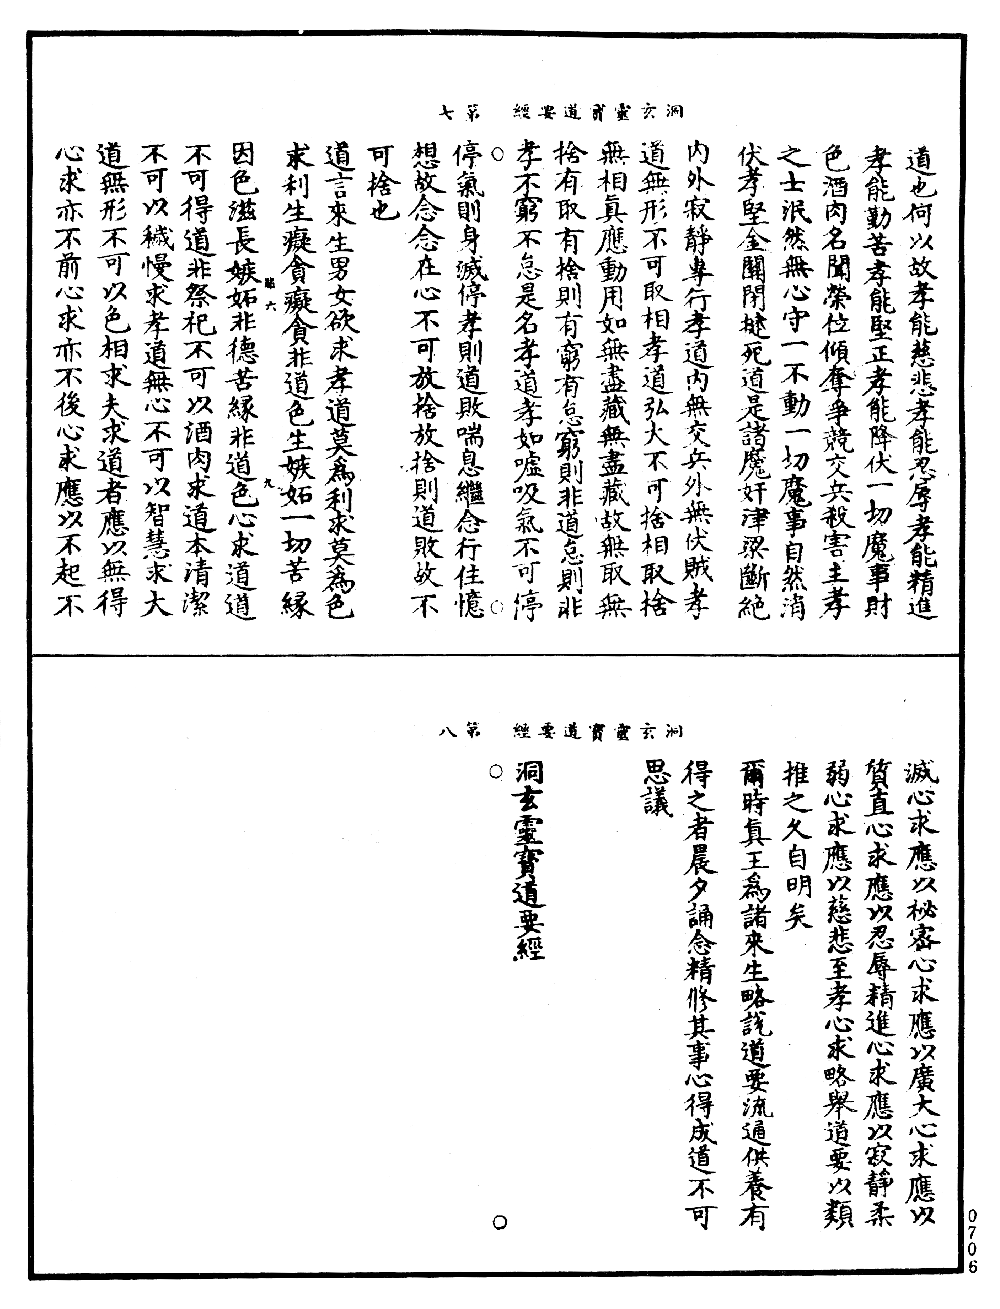 洞玄靈寶道要經　第七
道也何以故孝能慈悲孝能忍辱孝能精進
孝能勤苦孝能堅正孝能降伏一切魔事財
色酒肉名聞榮位傾奪爭競交兵殺害主孝
之士泯然無心守一不動一切魔事自然消
伏孝堅金關閉揵死道是諸魔奸津梁斷絕
內外寂靜專行孝道內無交兵外無伏賊孝
道無形不可取相孝道弘大不可捨相取捨
無相眞應動用如無盡藏無盡藏故無取無
捨有取有捨則有窮有怠窮則非道怠則非
孝不窮不怠是名孝道孝如噓吸氣不可停
停氣則身滅停孝則道敗喘息繼念行住憶
想故念念在心不可放捨放捨則道敗故不
可捨也
道言來生男女欲求孝道莫爲利求莫爲色
求利生癡貪癡貪非道色生嫉妬一切苦緣
因色滋長嫉妬非德苦緣非道色心求道道
不可得道非祭祀不可以酒肉求道本清潔
不可以穢慢求孝道無心不可以智慧求大
道無形不可以色相求夫求道者應以無得
心求亦不前心求亦不後心求應以不起不
六
九
洞玄靈寶道要經　第八
滅心求應以祕密心求應以廣大心求應以
質直心求應以忍辱精進心求應以寂靜柔
弱心求應以慈悲至孝心求略舉道要以類
推之久自明矣
爾時眞王爲諸來生略說道要流通供養有
得之者晨夕誦念精修其事心得成道不可
思議
洞玄靈寶道要經
0706